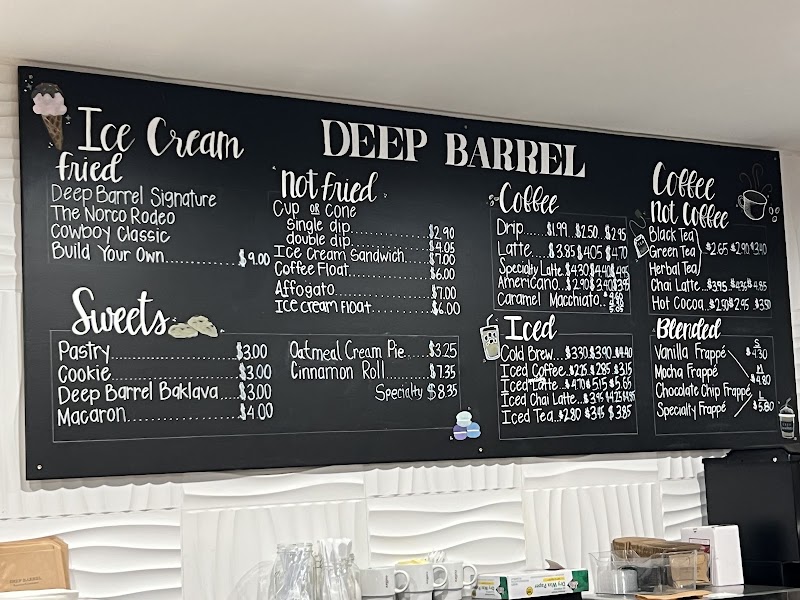 DEEP BARREL
Ice Cream
fried
Deep Barrel Signature
The Norco Rodeo
Cowboy Classic
Build Your Own $9.00
Not fried
Cup or Cone
Single dip $2.90
double dip $4.05
Ice Cream Sandwich $7.00
Coffee Float $6.00
Affogato $7.00
Ice cream Float $6.00
Sweets
Pastry $3.00
Cookie $3.00
Deep Barrel Baklava $3.00
Macaron $4.00
Oatmeal Cream Pie $3.25
Cinnamon Roll $7.35
Specialty $8.35
Coffee
Drip $1.99 $2.50 $2.95
Latte $3.85 $4.05 $4.70
Specialty Latte $4.30 $4.40 $4.95
Americano $2.90 $3.40
Caramel Macchiato
Iced
Cold Brew $3.30 $3.90 $4.40
Iced Coffee $2.75 $2.85 $3.15
Iced Latte $4.70 $5.15 $5.65
Iced Chai Latte $3.95 $4.25
Iced Tea $2.80 $3.45 $3.85
Coffee
Not Coffee
Black Tea
Green Tea $2.65 $2.90 $3.40
Herbal Tea
Chai Latte $3.95 $4.35 $4.85
Hot Cocoa $2.50 $2.95 $3.50
Blended
Vanilla Frappé S $4.30
Mocha Frappé M $4.80
Chocolate Chip Frappé L
Specialty Frappé $5.80
DEEP BARREL
Dry Wax Paper